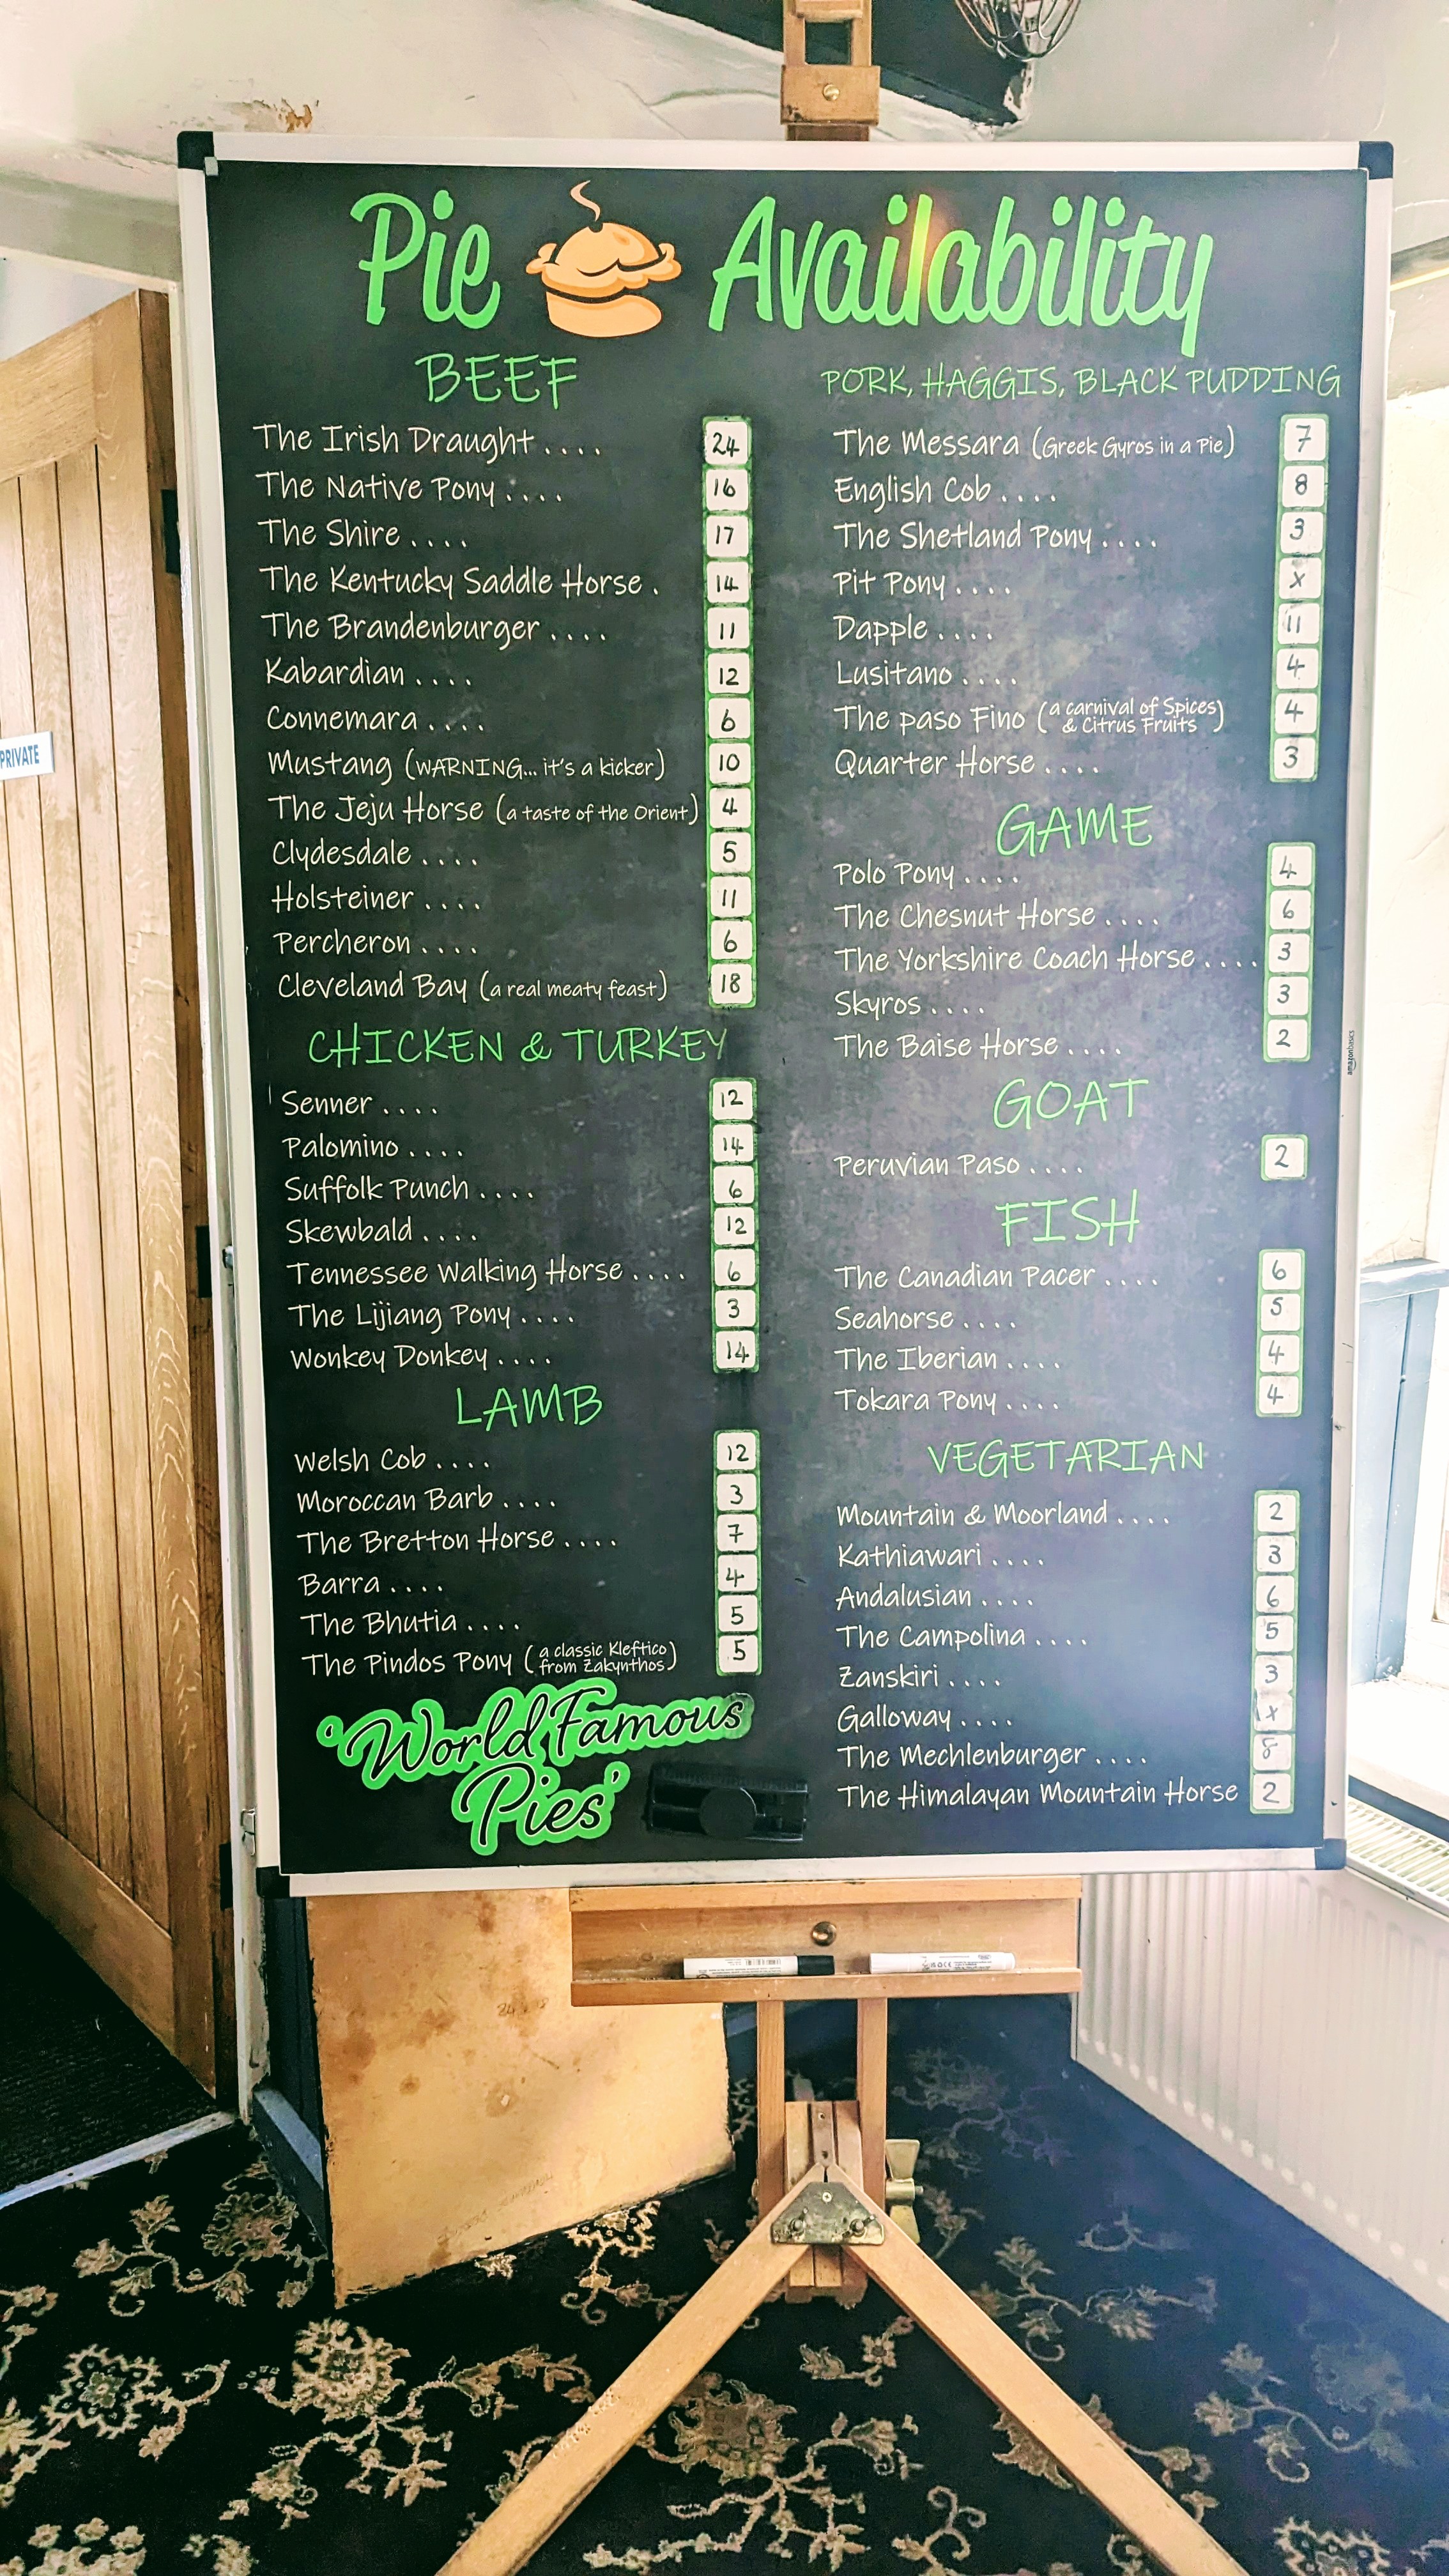 Pie Availability
BEEF
The Irish Draught .... 24
The Native Pony .... 16
The Shire .... 17
The Kentucky Saddle Horse . 14
The Brandenburger .... 11
Kabardian .... 12
Connemara .... 6
Mustang (WARNING... it's a kicker) 10
The Jeju Horse (a taste of the Orient) 4
Clydesdale .... 5
Holsteiner .... 11
Percheron .... 6
Cleveland Bay (a real meaty feast) 18
CHICKEN & TURKEY
Senner .... 12
Palomino .... 14
Suffolk Punch .... 6
Skewbald .... 12
Tennessee Walking Horse .... 6
The Lijiang Pony .... 3
Wonkey Donkey .... 14
LAMB
Welsh Cob .... 12
Moroccan Barb .... 3
The Bretton Horse .... 7
Barra .... 4
The Bhutia .... 5
The Pindos Pony (a classic Kleftico from Zakynthos) 5
'World Famous
Pies'
PORK, HAGGIS, BLACK PUDDING
The Messara (Greek Gyros in a Pie) 7
English Cob .... 8
The Shetland Pony .... 3
Pit Pony .... x
Dapple .... 11
Lusitano .... 4
The paso Fino (a carnival of Spices & Citrus Fruits) 4
Quarter Horse .... 3
GAME
Polo Pony .... 4
The Chesnut Horse .... 6
The Yorkshire Coach Horse .... 3
Skyros .... 3
The Baise Horse .... 2
GOAT
Peruvian Paso .... 2
FISH
The Canadian Pacer .... 6
Seahorse .... 5
The Iberian .... 4
Tokara Pony .... 4
VEGETARIAN
Mountain & Moorland .... 2
Kathiawari .... 3
Andalusian .... 6
The Campolina .... 5
Zanskiri .... 3
Galloway .... x
The Mechlenburger .... 8
The Himalayan Mountain Horse 2
PRIVATE
amazonbasics